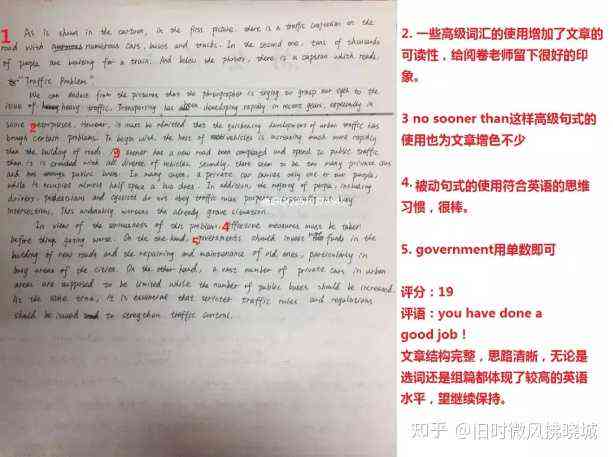 1 As is shown in the cartoon, in the first picture, there is a traffic congestion on the
road with numerous cars, buses and trucks. In the second one, tens of thousands
of people are waiting for a train. And below the photos, there is a caption which reads,
"Traffic Problem."
We can deduce from the pictures that the photographer is trying to our eyes to the
issue of heavy traffic. Transporting has been developing rapidly in recent years, especially in
some 2 However, it must be admitted that the quickening development of urban traffic has
brought certain problems. To begin with, the host of vehicles is increasing much more rapidly
than the building of roads. 3 sooner has a new road been completed and opend to public traffic
than it is crowded with all diverse of vehicles. Secondly, there seem to be too many private cars
and not enough public buses. In many cases, a private car carries only one or two people,
while it occupies almost half space a bus does. In addition, the majority of people, including
drivers, pedestrians and cyclists do not obey traffic rules properly, busy
intersections. This undoubtly worsens the already grave situation.
In view of the seriousness of this problem, 4 effective measures must be taken
before things going worse. On the one hand, 5 governments should invest funds in the
building of new roads and the repairing and maintenance of old ones, particularly in
busy areas of the cities. On the other hand, a vast number of private cars in urban
areas are supposed to be limited while the number of public buses should be increased.
At the same time, it is essential that stricter traffic rules and regulations
should be issued to strengthen traffic control.
2. 一些高级词汇的使用增加了文章的
可读性，给阅卷老师留下很好的印
象。
3 no sooner than这样高级句式的
使用也为文章增色不少
4. 被动句式的使用符合英语的思维
习惯，很棒。
5. government用单数即可
评分：19
评语：you have done a
good job！
文章结构完整，思路清晰，无论是
选词还是组篇都体现了较高的英语
水平，望继续保持。
知乎 @旧时微风拂晓城